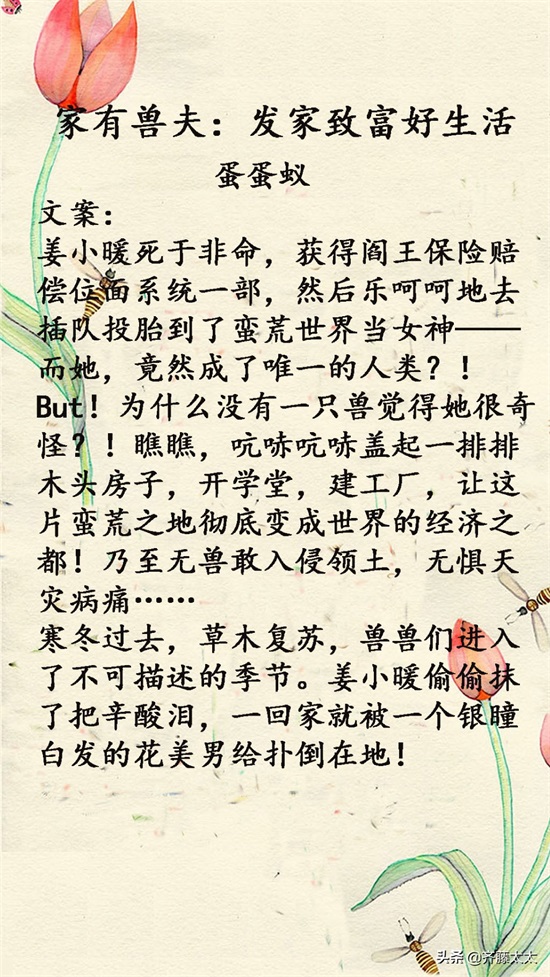 家有兽夫：发家致富好生活
蛋蛋蚁
文案：
姜小暖死于非命，获得阎王保险赔
偿位面系统一部，然后乐呵呵地去
插队投胎到了蛮荒世界当女神——
而她，竟然成了唯一的人类？！
But！为什么没有一只兽觉得她很奇
怪？！瞧瞧，吭哧吭哧盖起一排排
木头房子，开学堂，建工厂，让这
片蛮荒之地彻底变成世界的经济之
都！乃至无兽敢入侵领土，无惧天
灾病痛……
寒冬过去，草木复苏，兽兽们进入
了不可描述的季节。姜小暖偷偷抹
了把辛酸泪，一回家就被一个银瞳
白发的花美男给扑倒在地！
头条 @齐藤太太